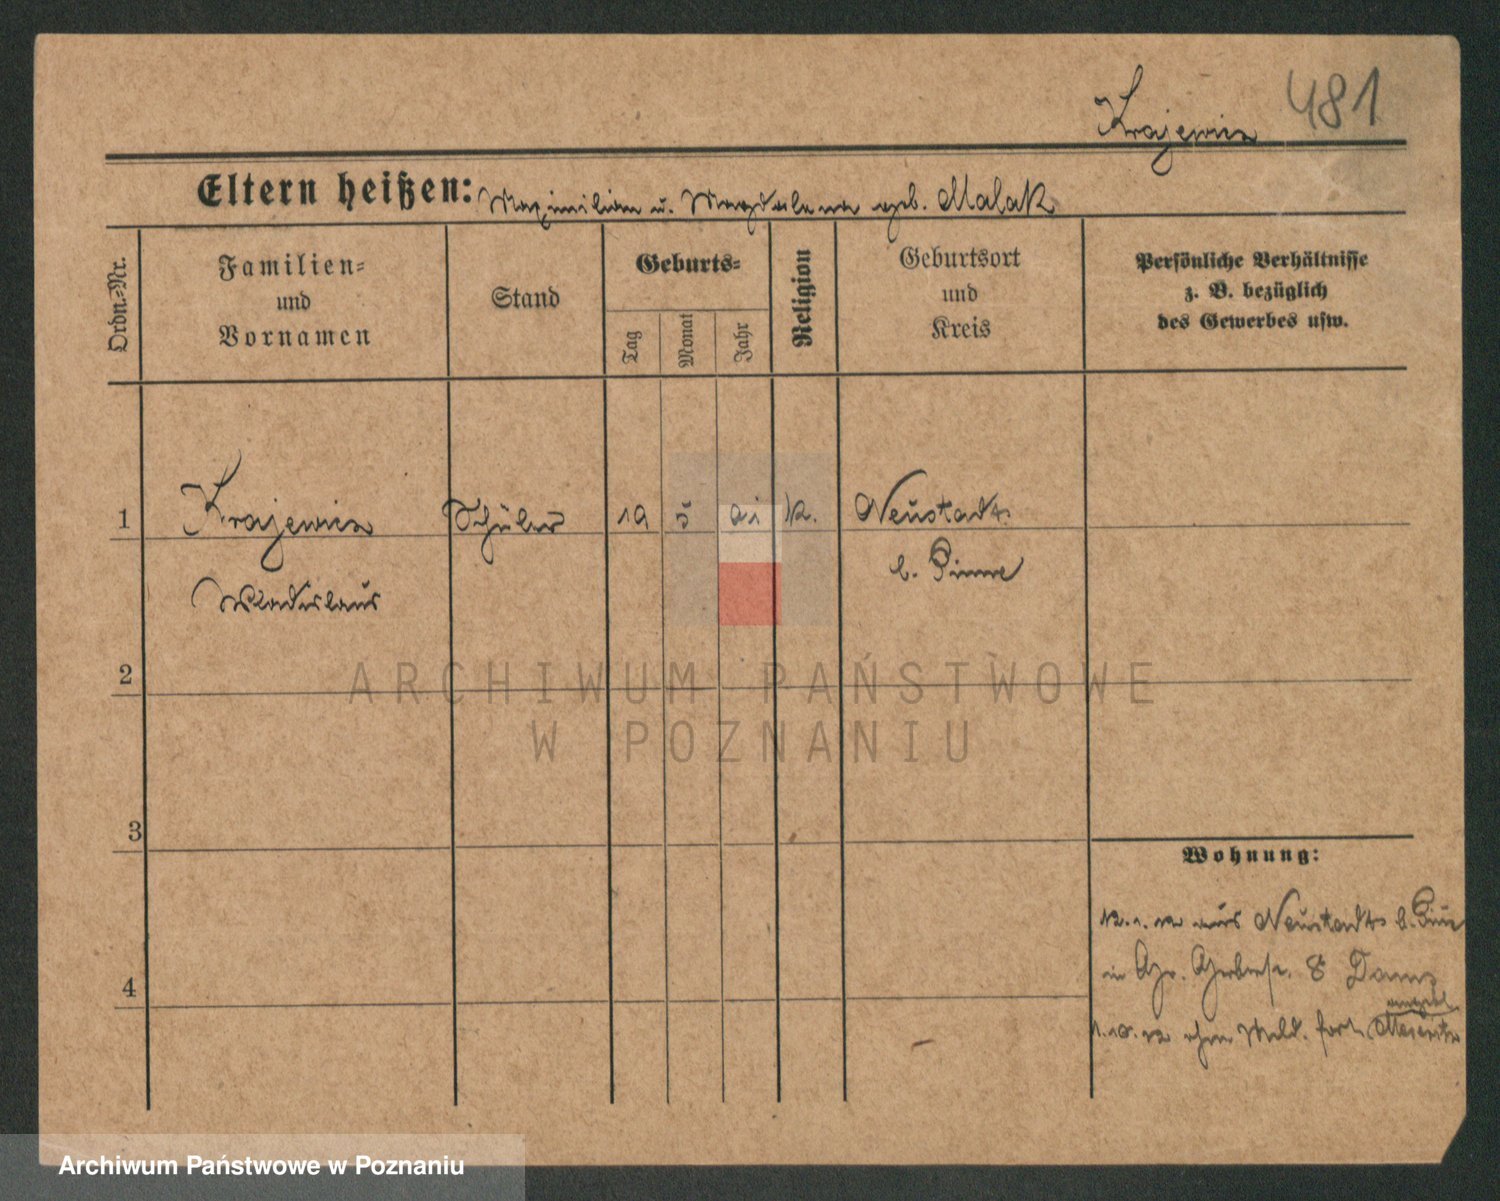 481
Krajewicz
Eltern heißen: Maximilian u. Magdalena geb. Malak
Ordn.=Nr.
Familien=
und
Vornamen
Stand
Geburts=
Tag
Monat
Jahr
Religion
Geburtsort
und
Kreis
Persönliche Verhältnisse
z. B. bezüglich
des Gewerbes usw.
1 Krajewicz Schüler 19 5 k. Neustadt
Wladislaus b. Pinne
2
3
4
Wohnung:
12.1.12 aus Neustadt b. Pinne
in Gr. Gerberstr. 8
1.10.12 ohne Meld. fort Meseritz
ARCHIWUM PAŃSTWOWE
W POZNANIU
Archiwum Państwowe w Poznaniu